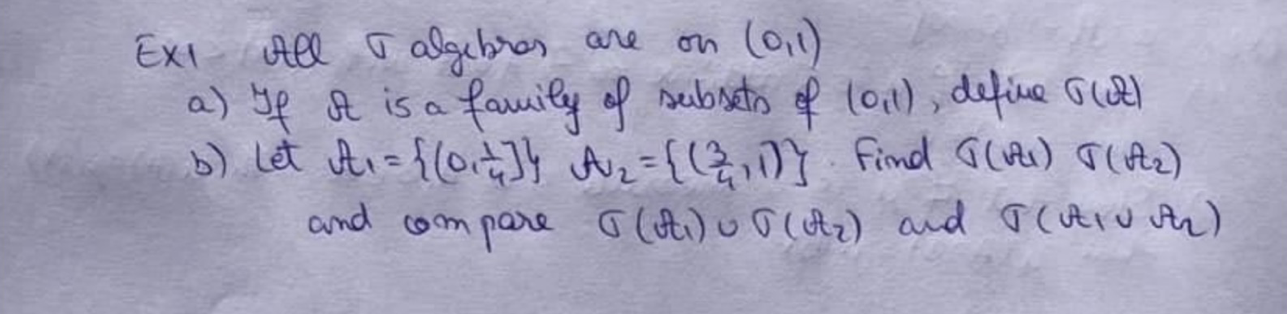 Ex1 All σ algebras are on (0,1)
a) If 𝒜 is a family of subsets of (0,1), define σ(𝒜)
b) Let 𝒜₁ = {(0,¼]} 𝒜₂ = {(¾,1)}. Find σ(𝒜₁) σ(𝒜₂)
and compare σ(𝒜₁) ∪ σ(𝒜₂) and σ(𝒜₁ ∪ 𝒜₂)